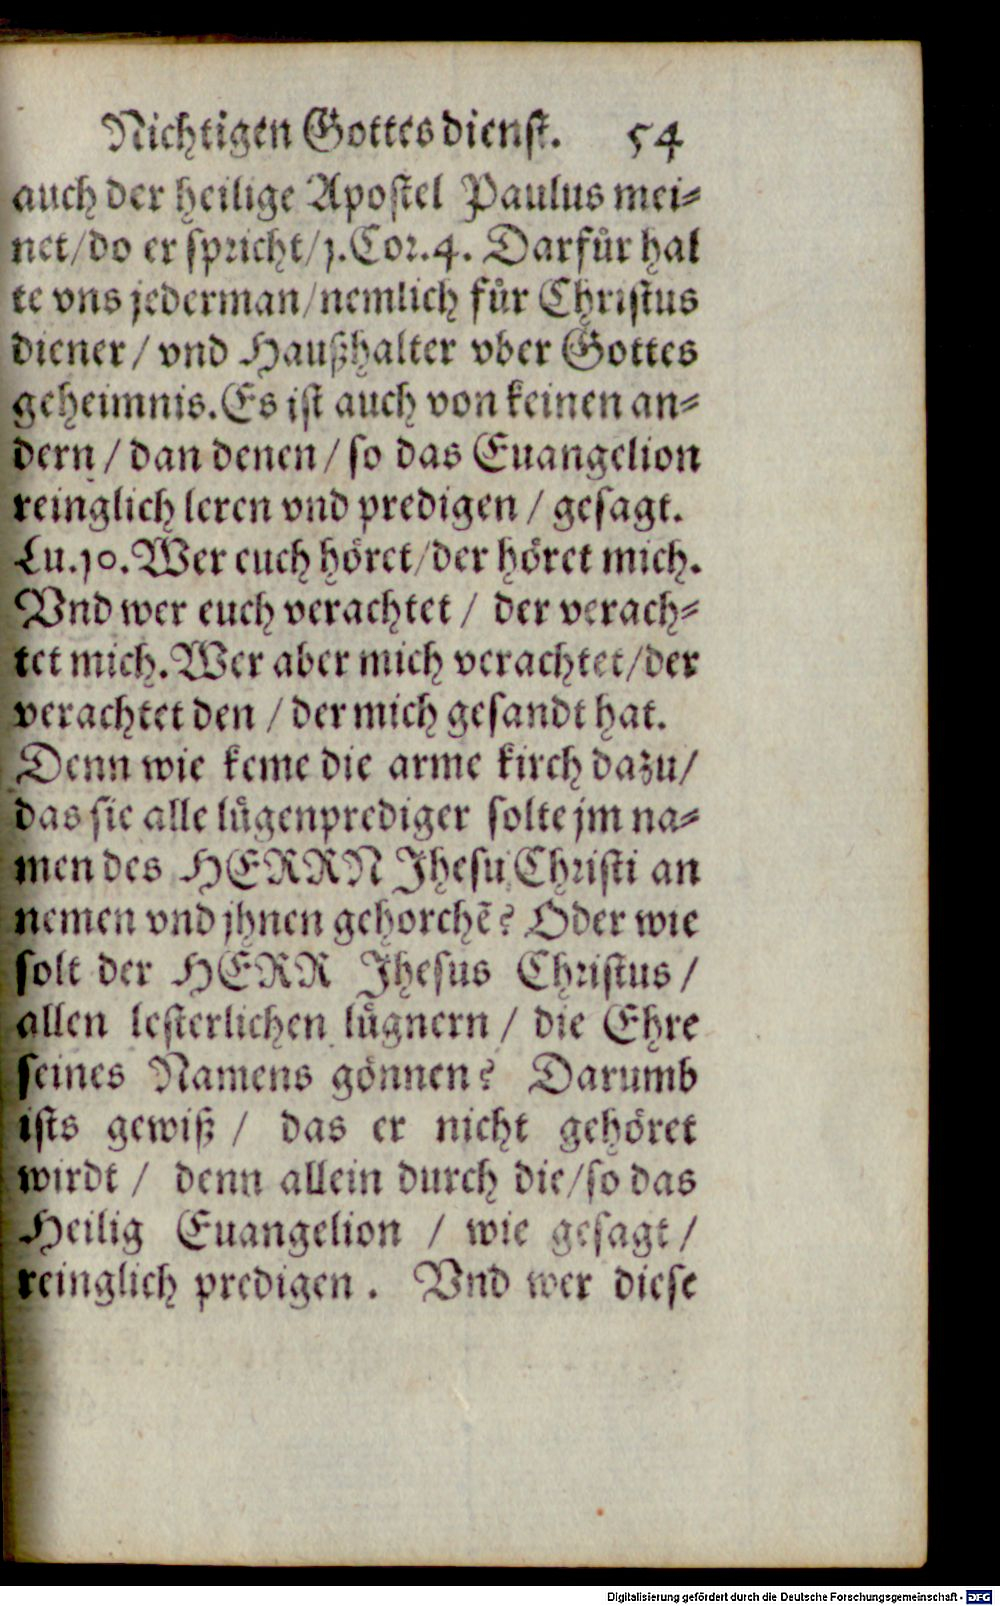 Nichtigen Gottesdienst. 54
auch der heilige Apostel Paulus mei-
net/do er spricht/1.Cor.4. Darfür hal
te vns jederman/nemlich für Christus
diener / vnd Haußhalter vber Gottes
geheimnis. Es ist auch von keinen an-
dern / dan denen / so das Euangelion
reinglich leren vnd predigen / gesagt.
Lu.10. Wer euch höret/der höret mich.
Vnd wer euch verachtet / der verach-
tet mich. Wer aber mich verachtet/der
verachtet den / der mich gesandt hat.
Denn wie keme die arme kirch dazu/
das sie alle lügenprediger solte jm na-
men des HERRN Jhesu Christi an
nemen vnd jhnen gehorchẽ? Oder wie
solt der HERR Jhesus Christus /
allen lesterlichen lügnern / die Ehre
seines Namens gönnen? Darumb
ists gewiß / das er nicht gehöret
wirdt / denn allein durch die/so das
Heilig Euangelion / wie gesagt /
reinglich predigen. Vnd wer diese
Digitalisierung gefördert durch die Deutsche Forschungsgemeinschaft - DFG